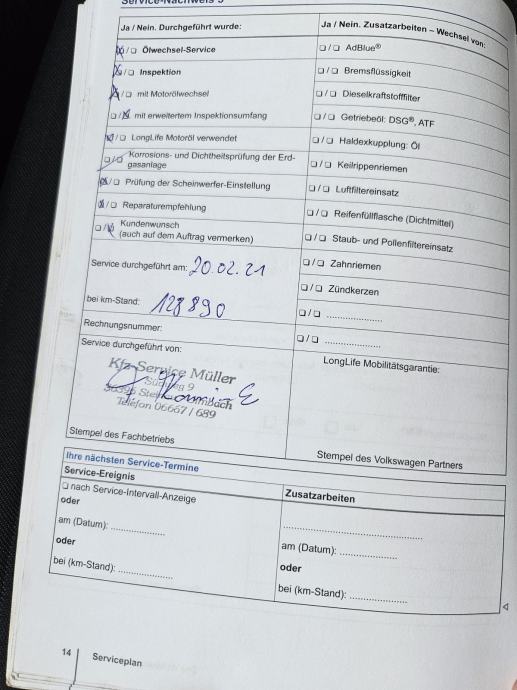 Service-Nachweis
Ja / Nein. Durchgeführt wurde:
❑ / ❑ Ölwechsel-Service
❑ / ❑ Inspektion
❑ / ❑ mit Motorölwechsel
❑ / ❑ mit erweitertem Inspektionsumfang
❑ / ❑ LongLife Motoröl verwendet
❑ / ❑ Korrosions- und Dichtheitsprüfung der Erd-
gasanlage
❑ / ❑ Prüfung der Scheinwerfer-Einstellung
❑ / ❑ Reparaturempfehlung
❑ / ❑ Kundenwunsch
(auch auf dem Auftrag vermerken)
Service durchgeführt am: 20.02.21
bei km-Stand: 128890
Rechnungsnummer:
Service durchgeführt von:
Kfz-Service Müller
9
Telefon 06667 / 689
Stempel des Fachbetriebs
Ja / Nein. Zusatzarbeiten – Wechsel von:
❑ / ❑ AdBlue®
❑ / ❑ Bremsflüssigkeit
❑ / ❑ Dieselkraftstofffilter
❑ / ❑ Getriebeöl: DSG®, ATF
❑ / ❑ Haldexkupplung: Öl
❑ / ❑ Keilrippenriemen
❑ / ❑ Luftfiltereinsatz
❑ / ❑ Reifenfüllflasche (Dichtmittel)
❑ / ❑ Staub- und Pollenfiltereinsatz
❑ / ❑ Zahnriemen
❑ / ❑ Zündkerzen
❑ / ❑ .....................
❑ / ❑ .....................
LongLife Mobilitätsgarantie:
Stempel des Volkswagen Partners
Ihre nächsten Service-Termine
Service-Ereignis
❑ nach Service-Intervall-Anzeige
oder
am (Datum): ....................
oder
bei (km-Stand): ....................
Zusatzarbeiten
..................................................
am (Datum): ....................
oder
bei (km-Stand): ....................
14 Serviceplan